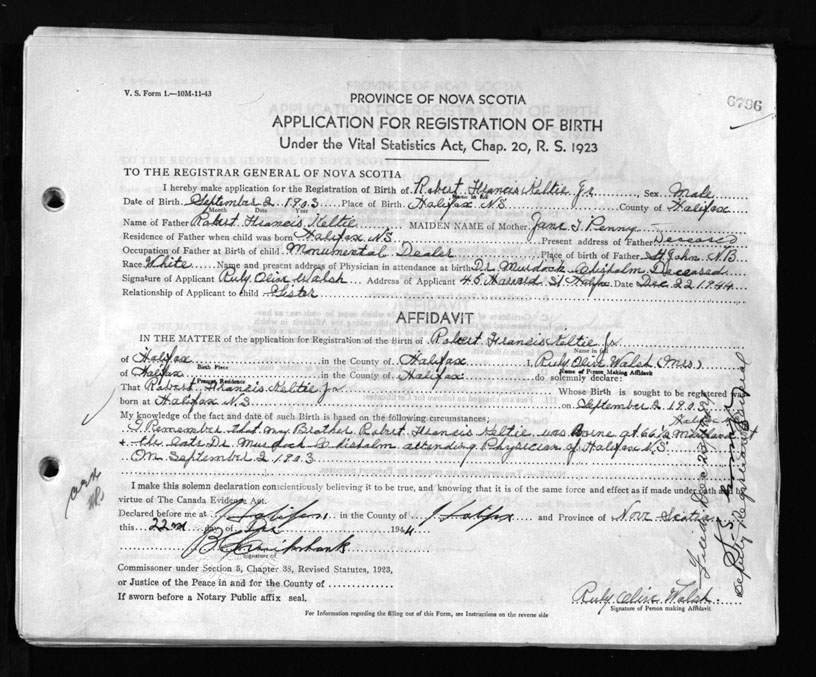 V. S. Form 1.—10M-11-43
6796
PROVINCE OF NOVA SCOTIA
APPLICATION FOR REGISTRATION OF BIRTH
Under the Vital Statistics Act, Chap. 20, R. S. 1923
TO THE REGISTRAR GENERAL OF NOVA SCOTIA
I hereby make application for the Registration of Birth of Robert Francis Keltie Jr Sex Male
Name in full
Date of Birth September 2 1903 Place of Birth Halifax N.S. County of Halifax
Month Date Year
Name of Father Robert Francis Keltie MAIDEN NAME of Mother Jane T. Penny
Residence of Father when child was born Halifax N.S. Present address of Father Deceased
Occupation of Father at Birth of child Monumental Dealer Place of birth of Father St John N.B.
Race White Name and present address of Physician in attendance at birth Dr Murdock Chisholm Deceased
Signature of Applicant Ruby Olive Walsh Address of Applicant 45 Harvard St Halifax Date Dec 22 1944
Relationship of Applicant to child Sister
AFFIDAVIT
IN THE MATTER of the application for the Registration of the Birth of Robert Francis Keltie Jr
Name in full
of Halifax in the County of Halifax I, Ruby Olive Walsh (Mrs)
Birth Place Name of Person Making Affidavit
of Halifax in the County of Halifax do solemnly declare:
Present Residence
That Robert Francis Keltie Jr Whose Birth is sought to be registered was
born at Halifax N.S. on September 2 1903
My knowledge of the fact and date of such Birth is based on the following circumstances: Halifax N.S.
I Remember that my Brother Robert Francis Keltie was Borne at 66½ Maitland
& the late Dr. Murdock Chisholm attending Physician of Halifax N.S.
On September 2 1903
I make this solemn declaration conscientiously believing it to be true, and knowing that it is of the same force and effect as if made under oath by
virtue of The Canada Evidence Act.
Declared before me at Halifax in the County of Halifax and Province of Nova Scotia
this 22nd day of Dec 1944
Signature of
Commissioner under Section 5, Chapter 38, Revised Statutes, 1923,
or Justice of the Peace in and for the County of
If sworn before a Notary Public affix seal.
Ruby Olive Walsh
Signature of Person making Affidavit
For Information regarding the filling out of this Form, see Instructions on the reverse side
Deputy Registrar General